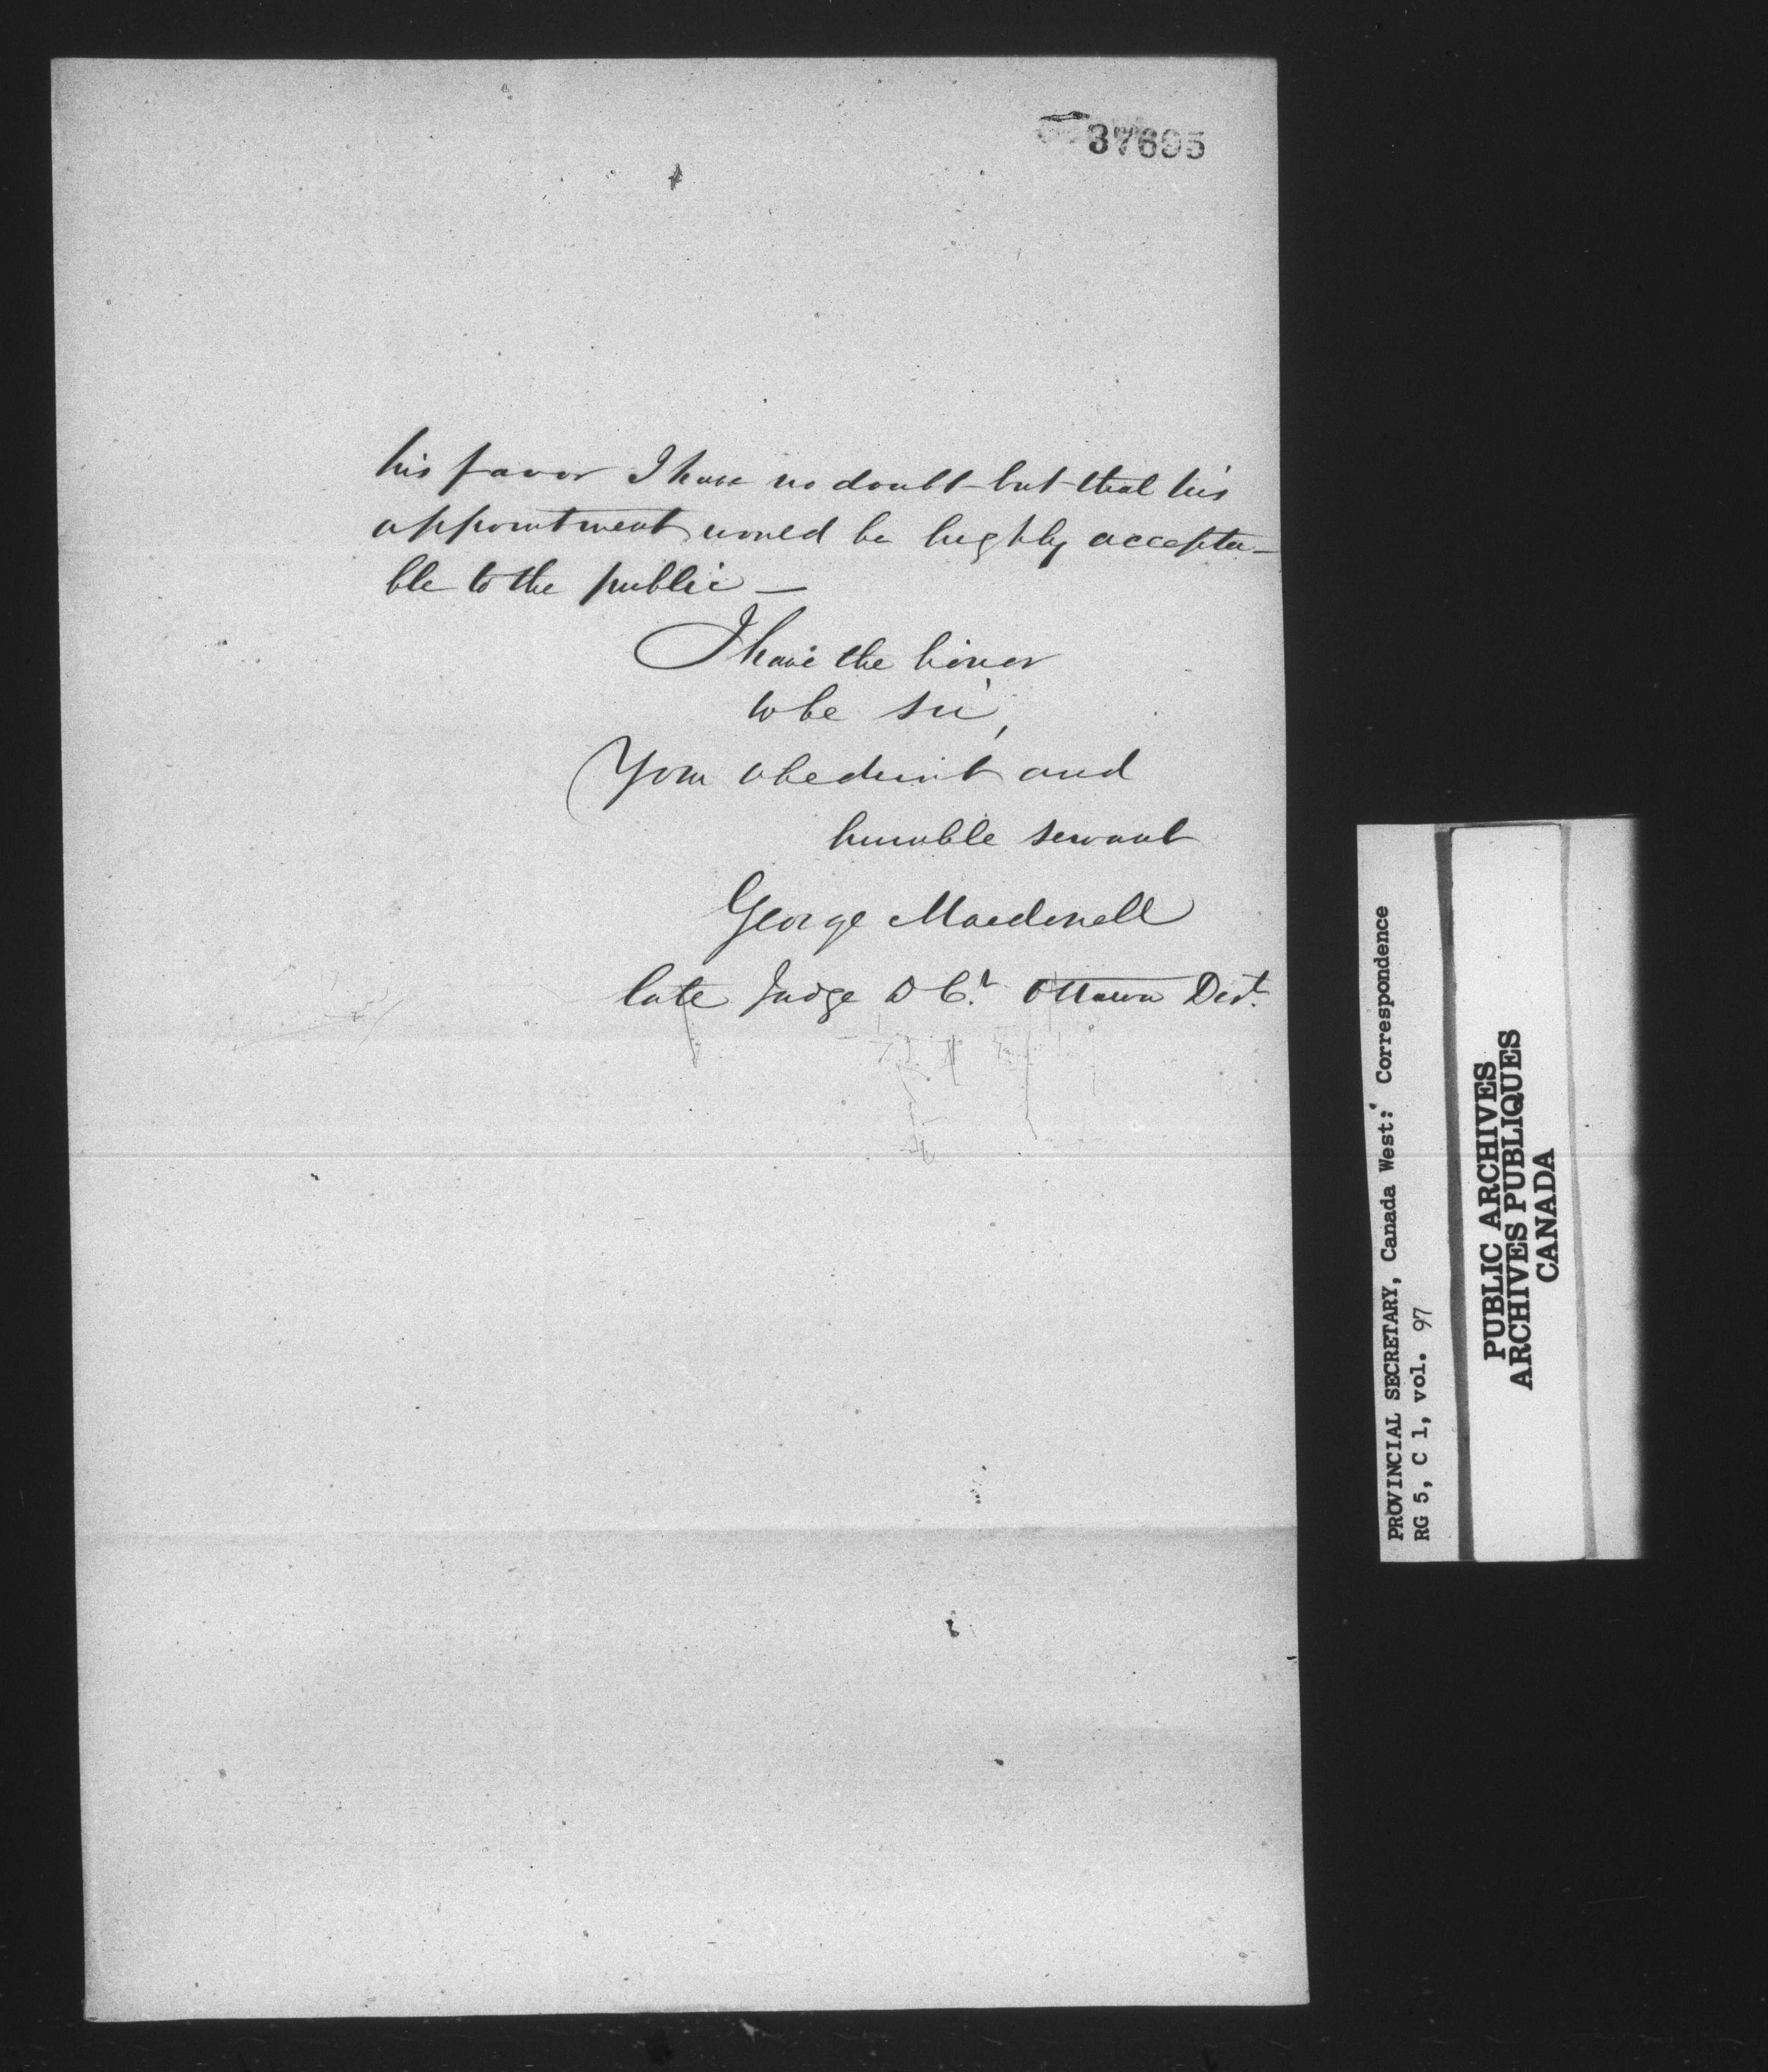 37695
his favor I have no doubt but that his
appointment would be highly accepta-
ble to the public —
I have the honor
to be sir,
Your obedient and
humble servant
George Macdonell
late Judge D Ct. Ottawa Dist.
PROVINCIAL SECRETARY, Canada West: Correspondence
RG 5, C 1, vol. 97
PUBLIC ARCHIVES
ARCHIVES PUBLIQUES
CANADA